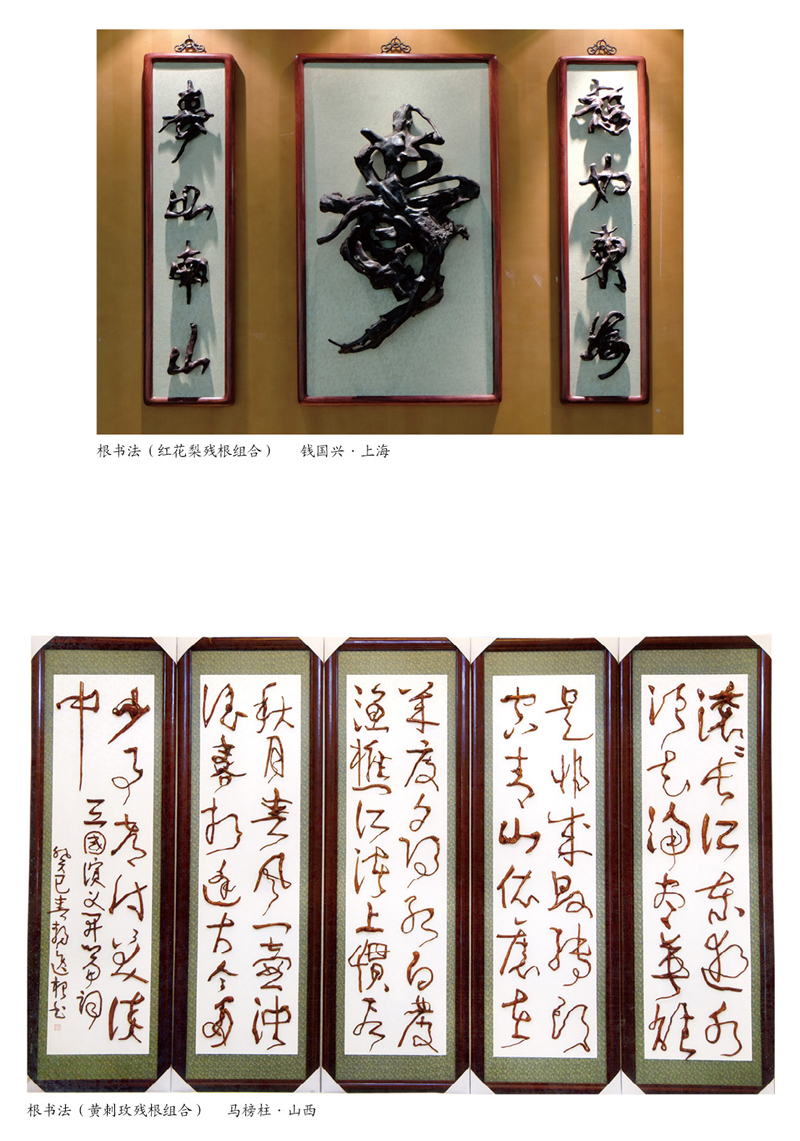 福如東海
壽
壽比南山
根书法（红花梨残根组合） 钱国兴·上海
滚〻长江东逝水
浪花淘尽英雄
是非成败转头
空青山依旧在
几度夕阳红白发
渔樵江渚上惯看
秋月春风一壶浊
酒喜相逢古今多
少事都付笑谈
中
三國演义开篇词
癸巳春
根书法（黄刺玫残根组合） 马榜柱·山西